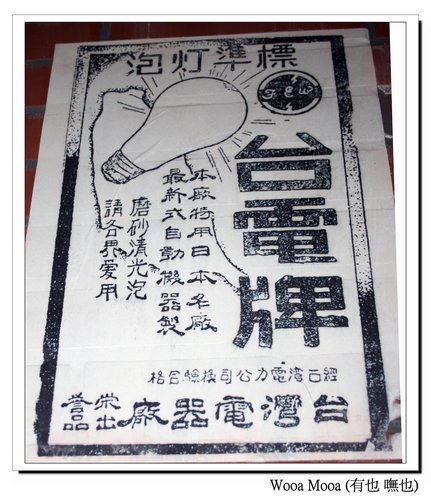 標準灯泡
台電牌
本廠特用日本名廠
最新式自動機器製
磨砂清光泡
請各界爱用
經台湾電力公司檢驗合格
台灣電器廠
荣誉出品
Wooa Mooa (有也 嘸也)